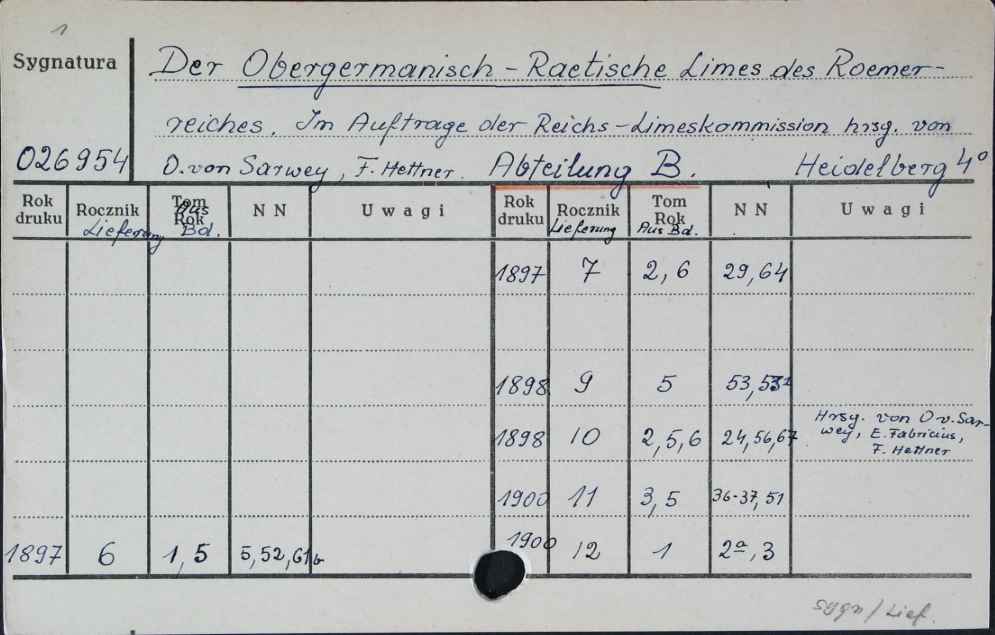 1
Sygnatura
Der Obergermanisch - Raetische Limes des Roemer-
reiches. Im Auftrage der Reichs - Limeskommission hrsg. von
026954 O. von Sarwey, F. Hettner. Abteilung B. Heidelberg 4°
Rok druku Rocznik Lieferung Tom Rok Aus Bd. NN Uwagi Rok druku Rocznik Lieferung Tom Rok Aus Bd. NN Uwagi
1897 7 2, 6 29, 64
1898 9 5 53,
1898 10 2, 5, 6 24, 56, 67 Hrsg. von O v. Sar-
wey, E. Fabricius,
F. Hettner
1900 11 3, 5 36-37, 51
1897 6 1, 5 5, 52, 61b 1900 12 1 2a, 3
sygn / Lief.